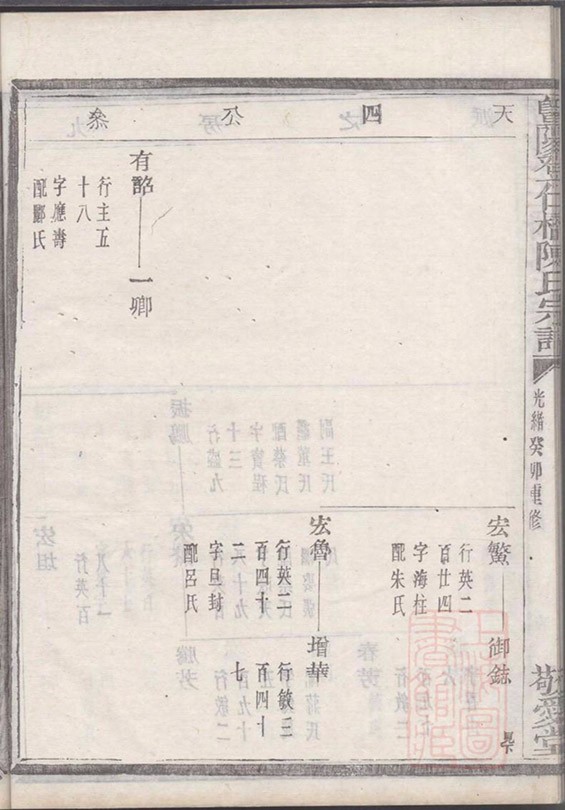 石橋陳氏宗譜
光緒癸卯重修
敬愛堂
天四公系
宏鰲—御鋕
行英二
百廿四
字海柱
配朱氏
宏魯—增華
行英二
百四十
字旦封
配呂氏
行敏三
百四十
七
有韶—一卿
行主五
十八
字應壽
配酈氏